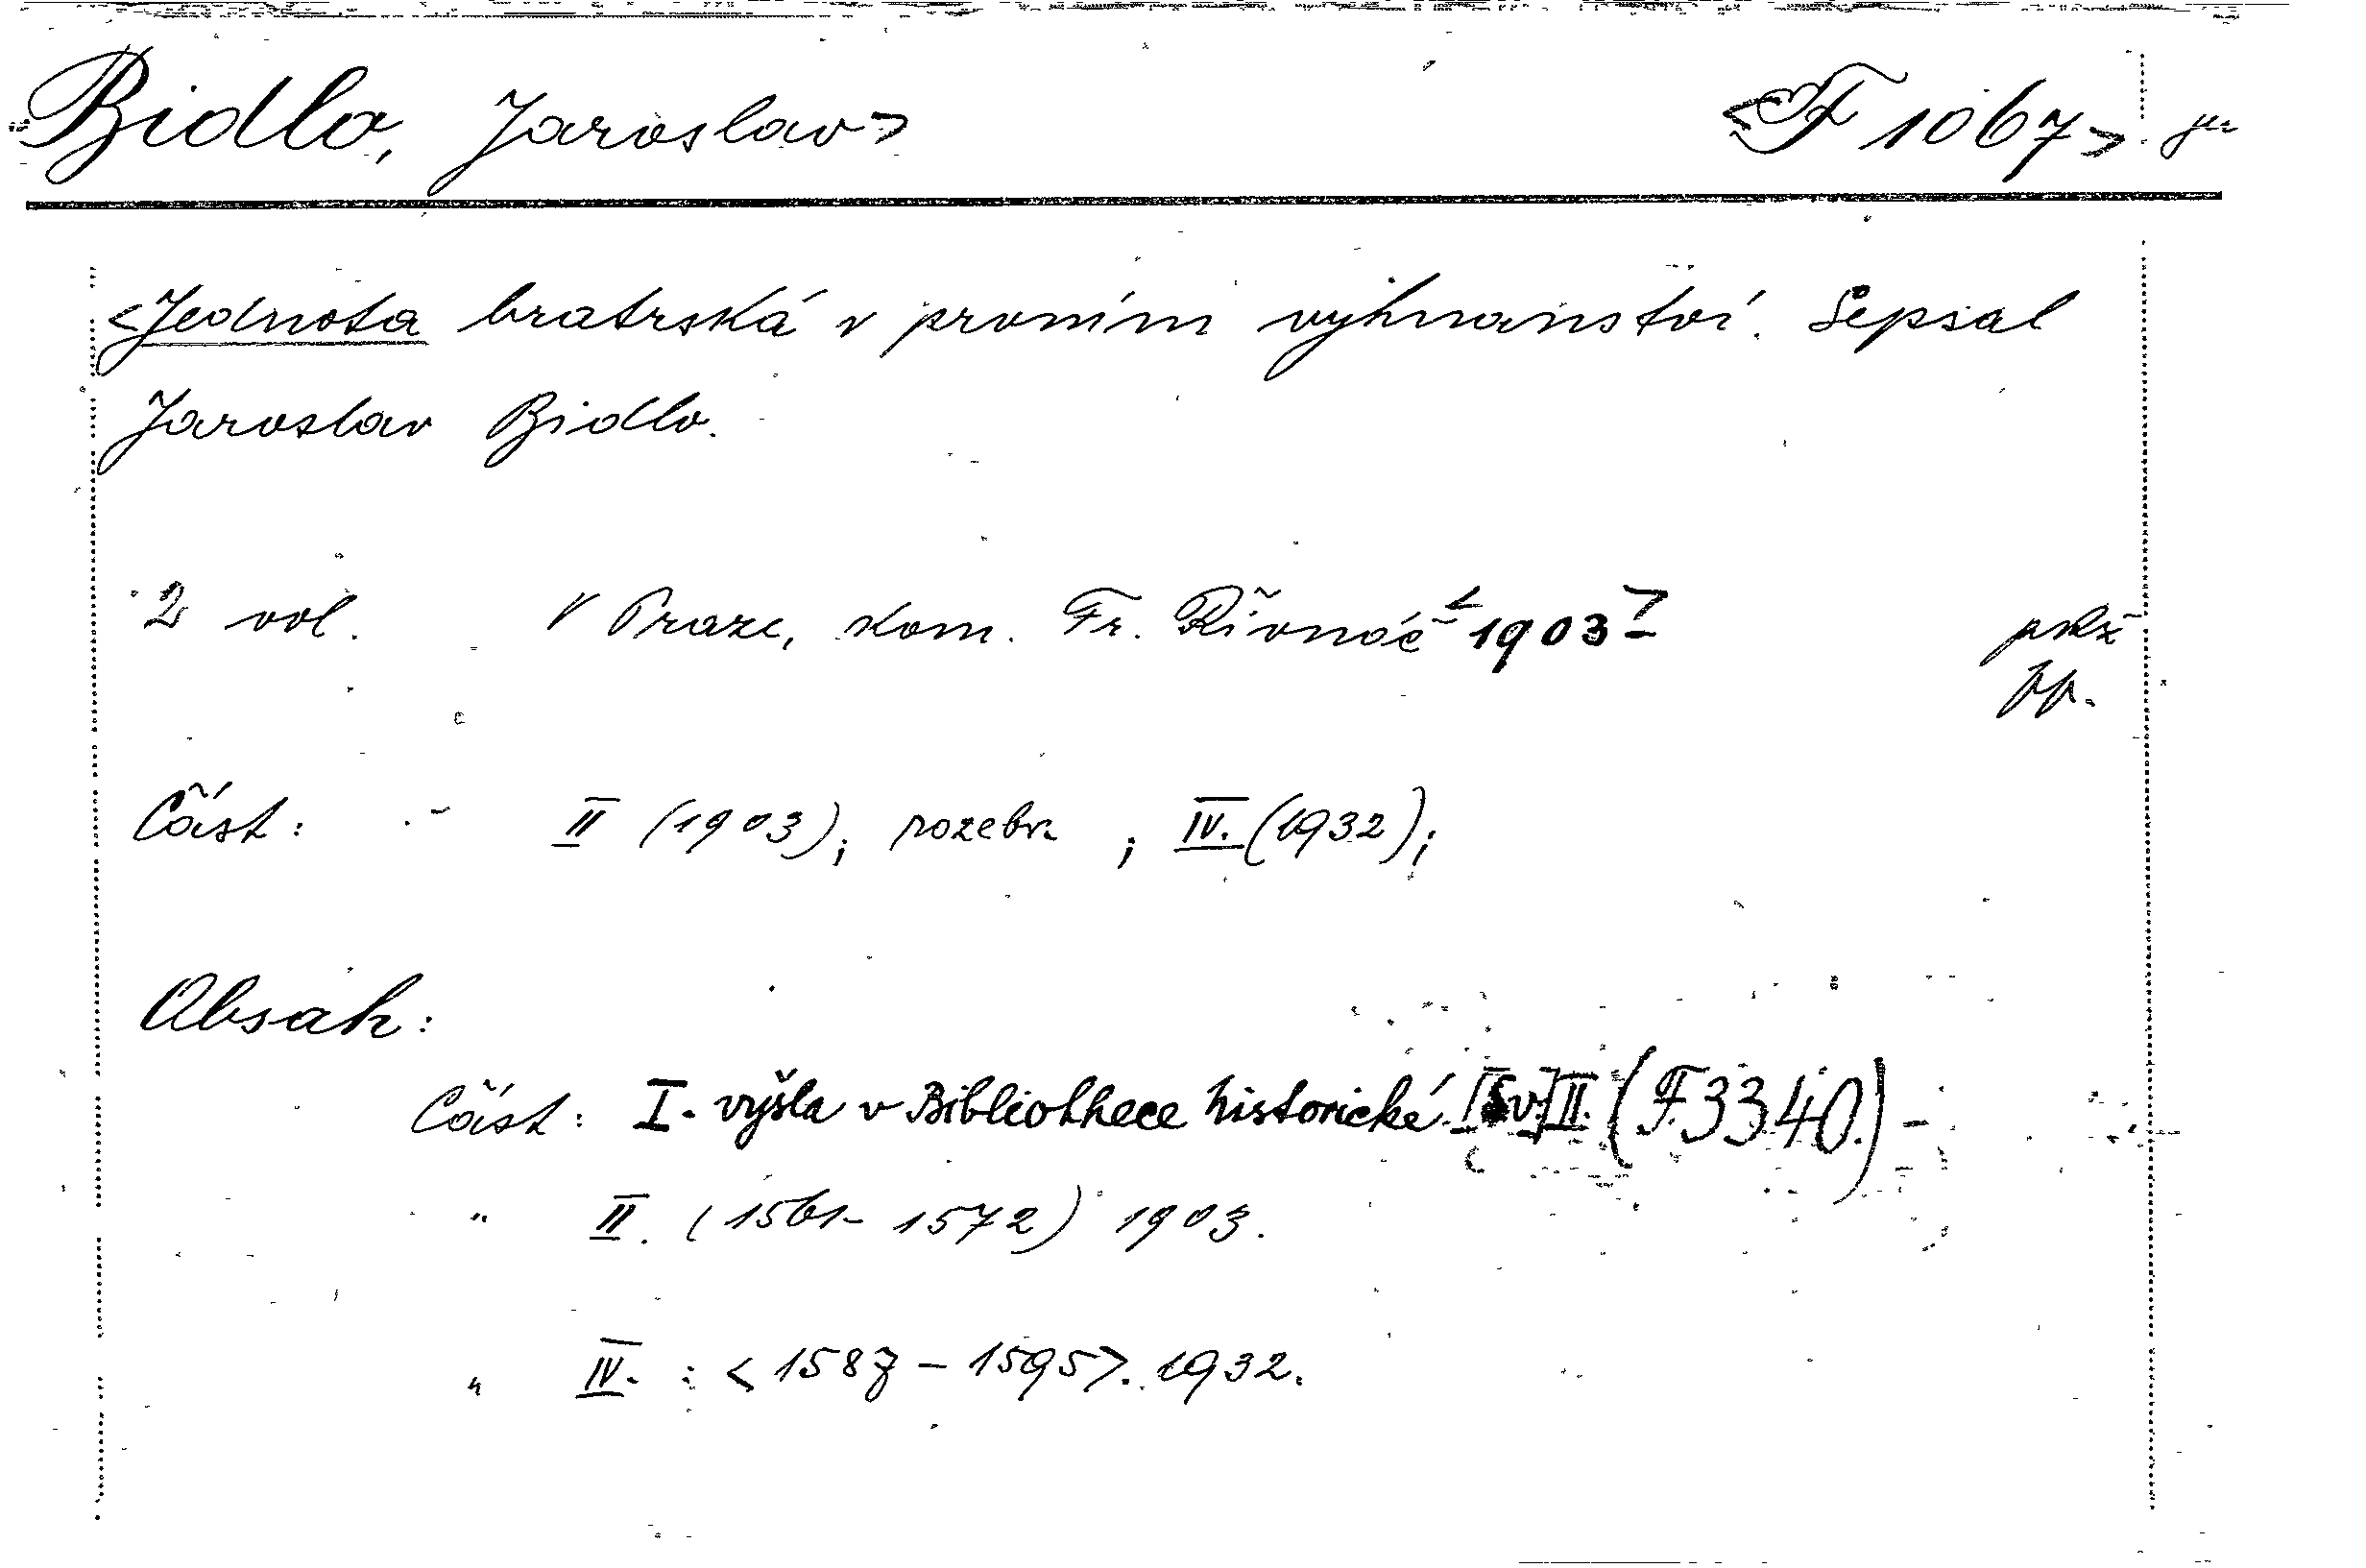 Bidlo, Jaroslav> <F 1067>
<Jednota bratrská v prvním vyhnanství. Sepsal
Jaroslav Bidlo.
2 vol. V Praze, kom. Fr. Řivnáč <1903>
pp.
Část: II (1903); rozebr. ; IV. (1932);
Obsah:
Část: I. vyšla v Bibliothece historické [Sv.] II. (F.3340.) -
" II. (1561-1572) 1903.
" IV. : <1587-1595>. 1932.